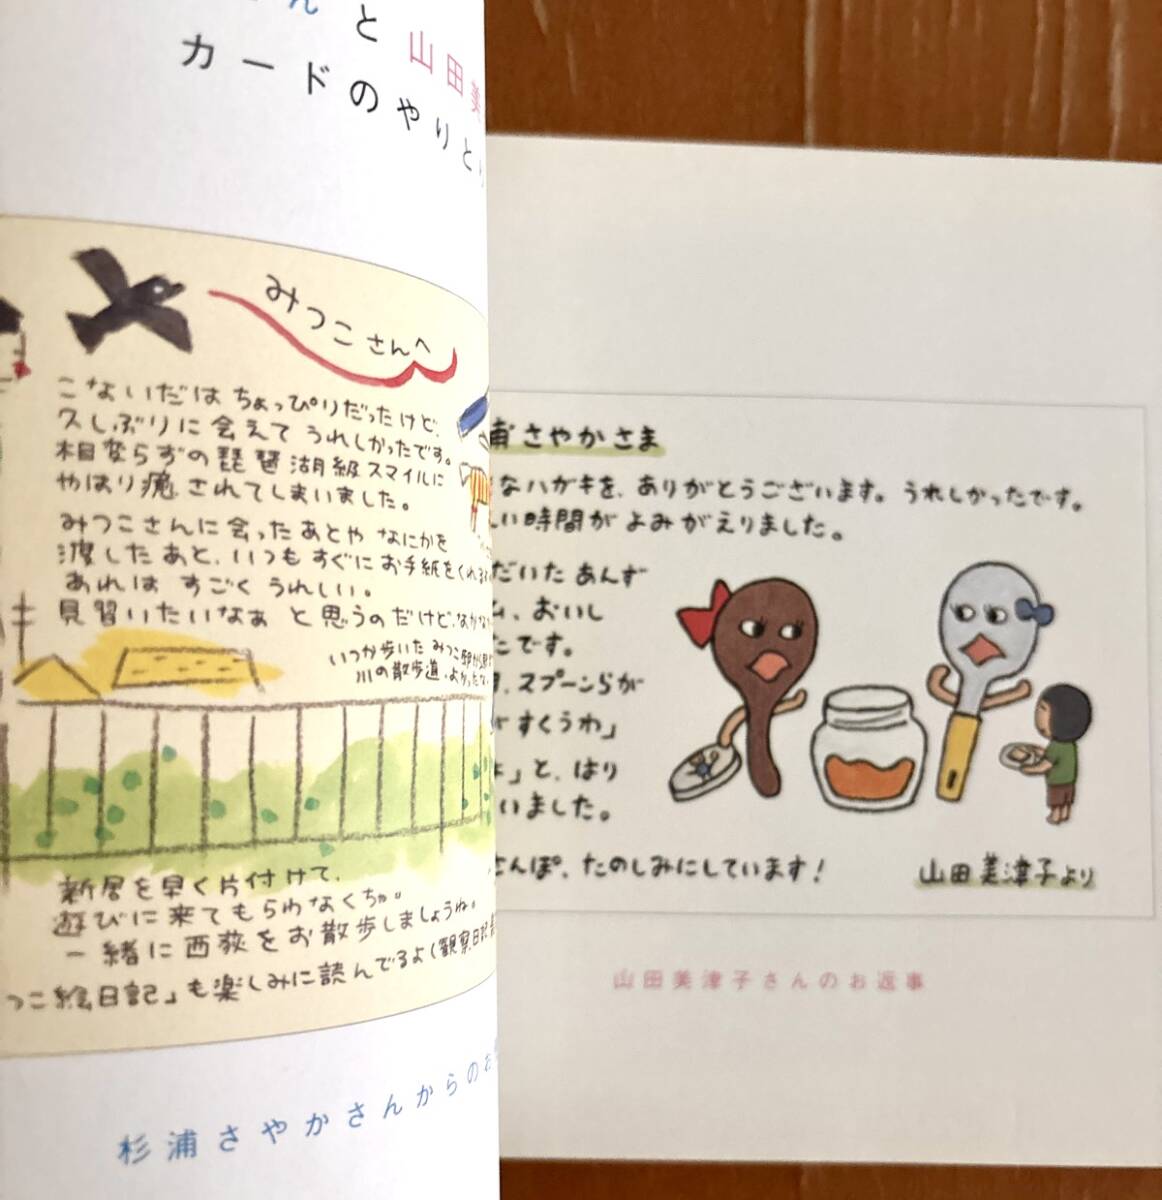 んと山田美
カードのやりとり
みつこさんへ
こないだはちょっぴりだったけど、
久しぶりに会えてうれしかったです。
相変らずの琵琶湖級スマイルに
やはり癒されてしまいました。
みつこさんに会ったあとやなにかを
渡したあと、いつもすぐにお手紙をくれる
あれはすごくうれしい。
見習いたいなぁと思うのだけど、なかな
いつか歩いたみつこ
川の散歩道、よかったな
新居を早く片付けて、
遊びに来てもらわなくちゃ。
一緒に西荻をお散歩しましょうね。
つこ絵日記」も楽しみに読んでるよ(観察日記
杉浦さやかさんからのお
浦さやかさま
なハガキを、ありがとうございます。うれしかったです。
しい時間がよみがえりました。
だいたあんず
ム、おいし
たです。
、スプーンらが
がすくうわ」
よ」と、はり
いました。
さんぽ、たのしみにしています!
山田美津子より
山田美津子さんのお返事